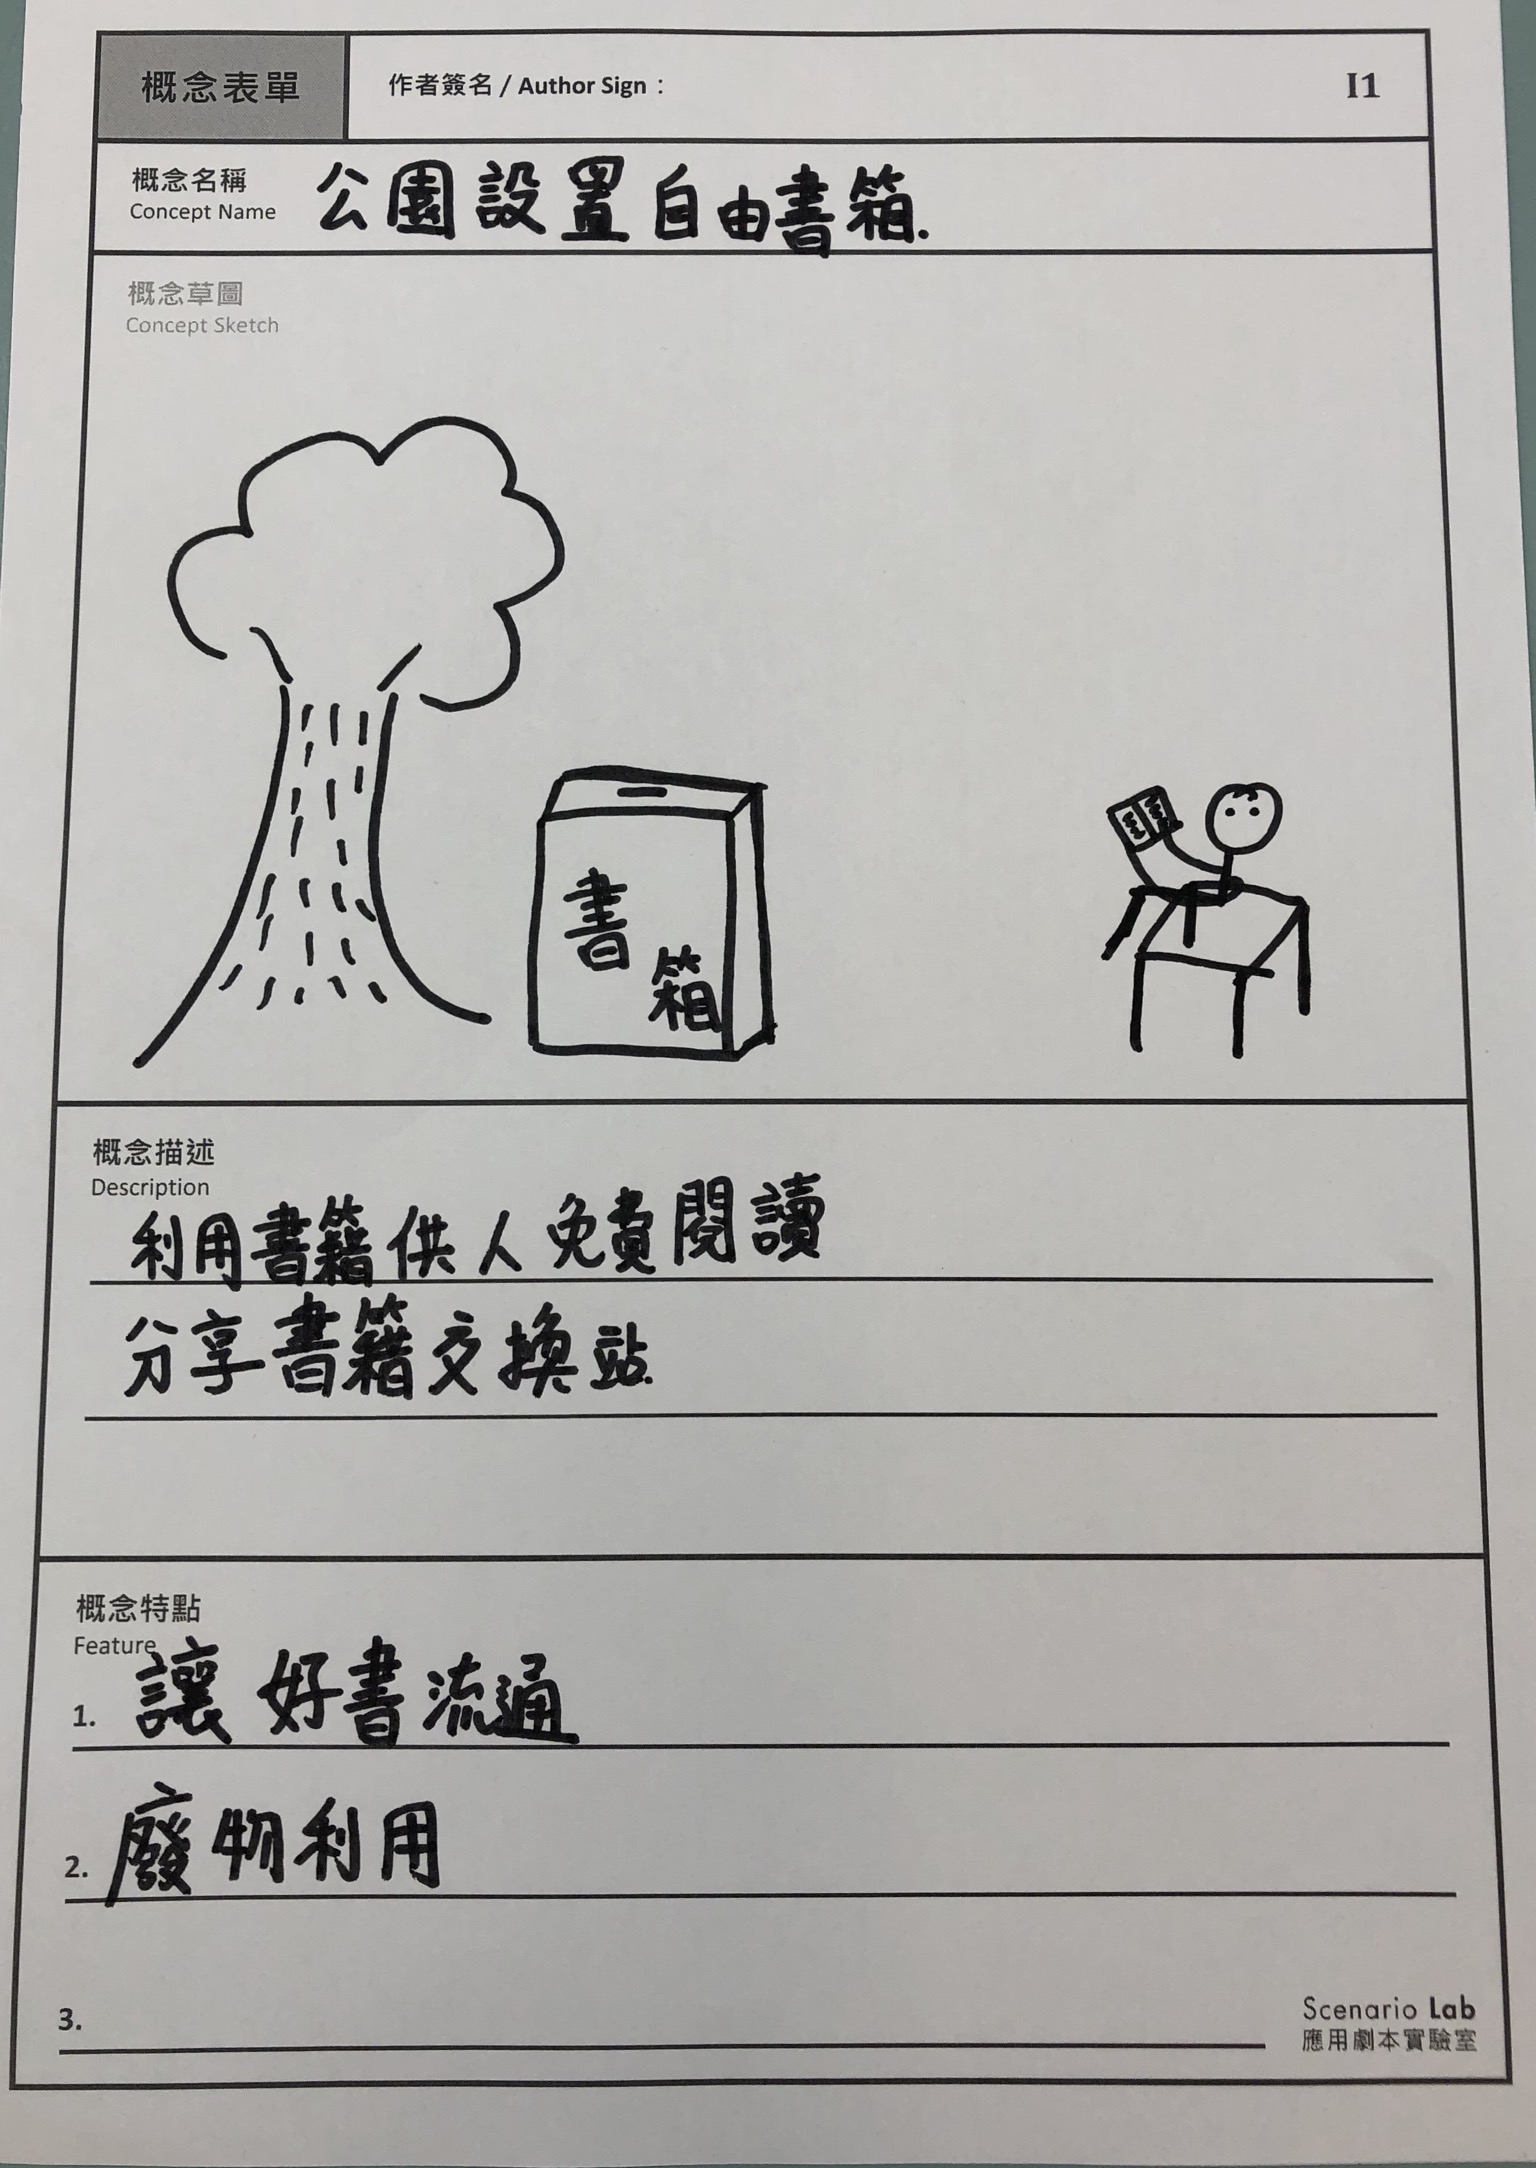 概念表單
作者簽名 / Author Sign：
I1
概念名稱
Concept Name
公園設置自由書箱.
概念草圖
Concept Sketch
書
箱
概念描述
Description
利用書籍供人免費閱讀
分享書籍交換站.
概念特點
Feature
1. 讓好書流通
2. 廢物利用
3.
Scenario Lab
應用劇本實驗室